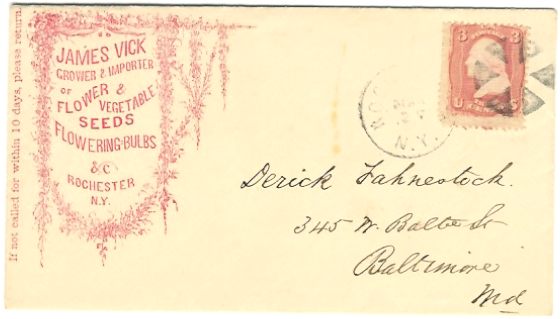 If not called for within 10 days, please return
JAMES VICK
GROWER & IMPORTER
OF
FLOWER &
VEGETABLE
SEEDS
FLOWERING BULBS
&C
ROCHESTER
N.Y.
3 3
U S
N.Y.
Derick Fahnestock.
345 W. Balto St
Baltimore
Md